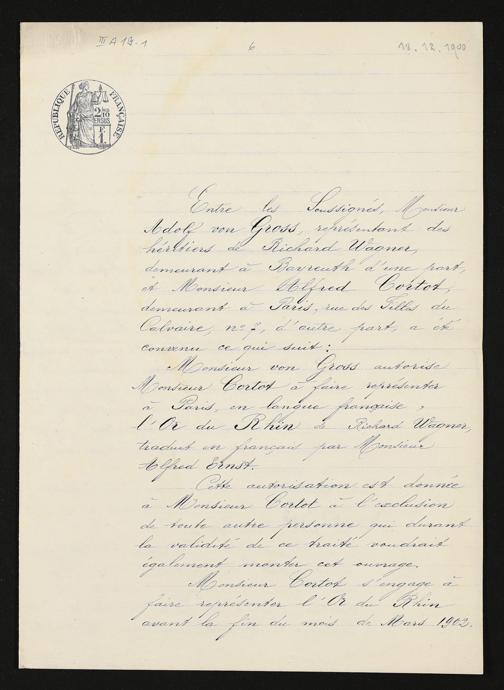 III A 19-1
6
18.12.1900
RÉPUBLIQUE FRANÇAISE
2/10 EN SUS
1 F
Entre les Soussignés, Monsieur
Adolf von Gross, représentant des
héritiers de Richard Wagner,
demeurant à Bayreuth d'une part,
et Monsieur Alfred Cortot,
demeurant à Paris, rue des Filles du
Calvaire, n° 7, d'autre part, a été
convenu ce qui suit:
Monsieur von Gross autorise
Monsieur Cortot à faire représenter
à Paris, en langue française,
l'Or du Rhin de Richard Wagner,
traduit en français par Monsieur
Alfred Ernst.
Cette autorisation est donnée
à Monsieur Cortot à l'exclusion
de toute autre personne qui durant
la validité de ce traité voudrait
également monter cet ouvrage.
Monsieur Cortot s'engage à
faire représenter l'Or du Rhin
avant la fin du mois de Mars 1902.